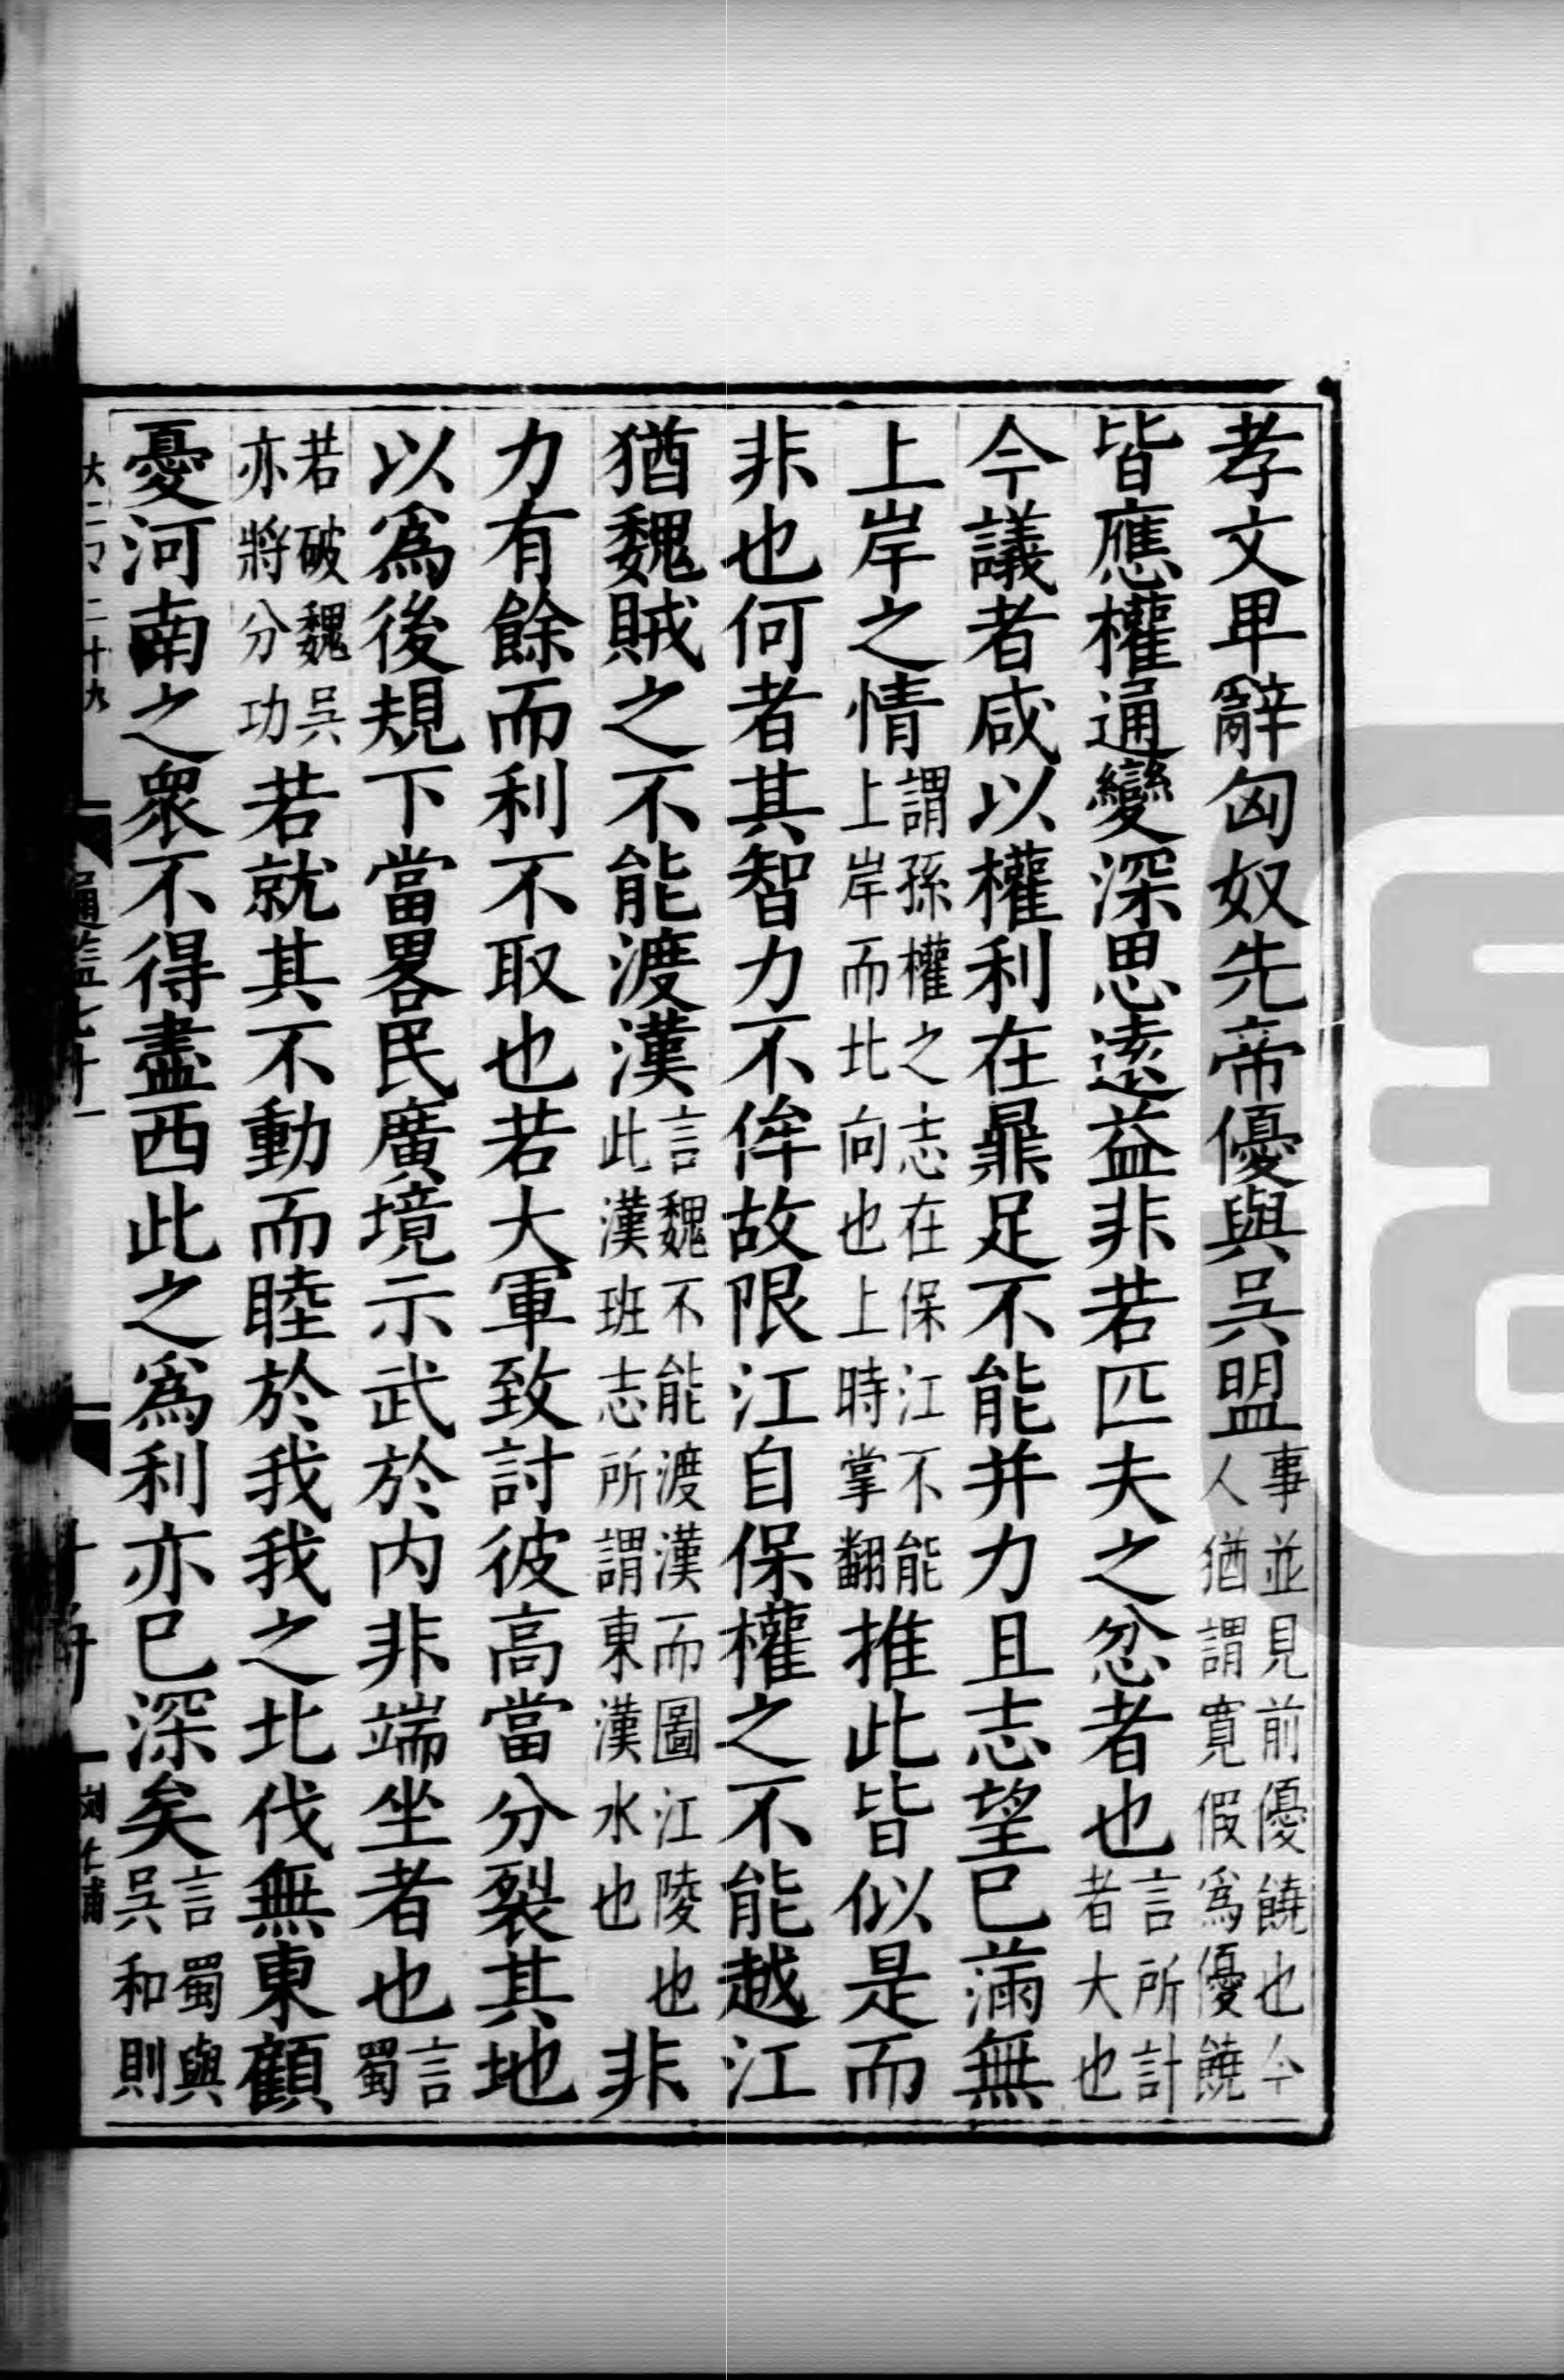 孝文卑辭匈奴先帝優與吳盟事並見前優饒也今人猶謂寬假爲優饒
皆應權通變深思遠益非若匹夫之忿者也言所計者大也
今議者咸以權利在鼎足不能并力且志望已滿無
上岸之情謂孫權之志在保江不能上岸而北向也上時掌翻推此皆似是而
非也何者其智力不侔故限江自保權之不能越江
猶魏賊之不能渡漢言魏不能渡漢而圖江陵也此漢班志所謂東漢水也非
力有餘而利不取也若大軍致討彼高當分裂其地
以爲後規下當畧民廣境示武於內非端坐者也言蜀
若破魏吳亦將分功若就其不動而睦於我我之北伐無東顧
憂河南之衆不得盡西此之爲利亦已深矣言蜀與吳和則
通監七十一